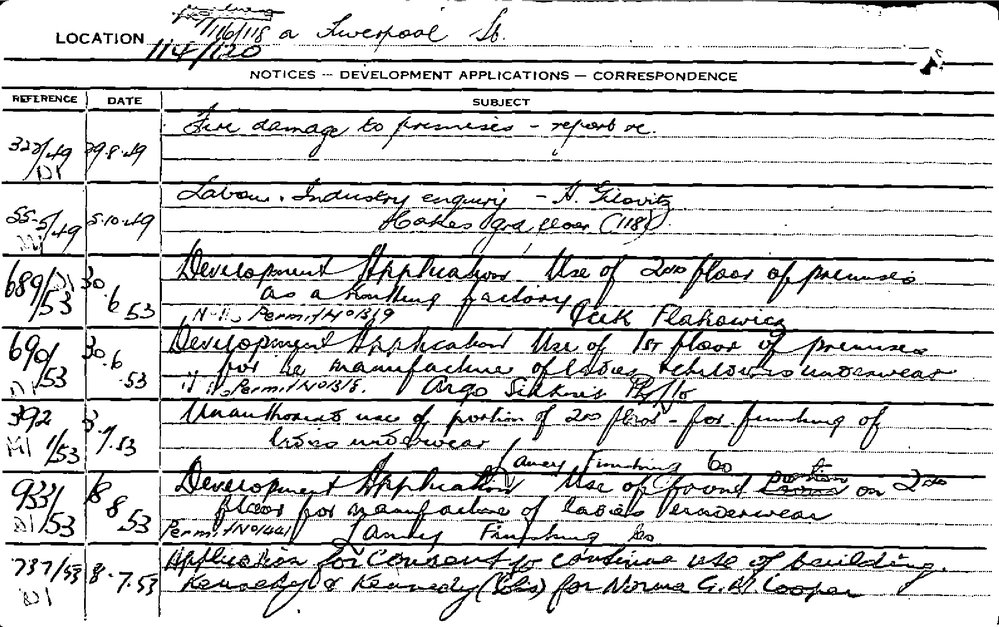 116/118 a Liverpool St.
LOCATION 114/120
NOTICES — DEVELOPMENT APPLICATIONS — CORRESPONDENCE
REFERENCE DATE SUBJECT
Fire damage to premises - report re.
322/49 29.8.49
D1
Labour & Industry enquiry - A.
55-5/49 5.10.49 grd floor (118)
689/53 D1 30.6.53 Development Application Use of 2nd floor of premises
as a Knitting factory
Permit No 1319 Flakowicz
690/53 D1 30.6.53 Development Application Use of 1st floor of premises
for the manufacture of ladies & childrens underwear
Permit No 1318. Argo Pty Ltd
392 1/53 M1 3.7.53 Unauthorised use of portion of 2nd floor - for finishing of
ladies underwear
Finishing Co
933/53 D1 18.8.53 Development Application Use of portion on 2nd
floor for manufacture of ladies underwear
Permit No 1441 Finishing Co
737/53 D1 8.7.53 Application for Consent to continue use of building.
Kennedy & Kennedy for Norma G. M. Cooper